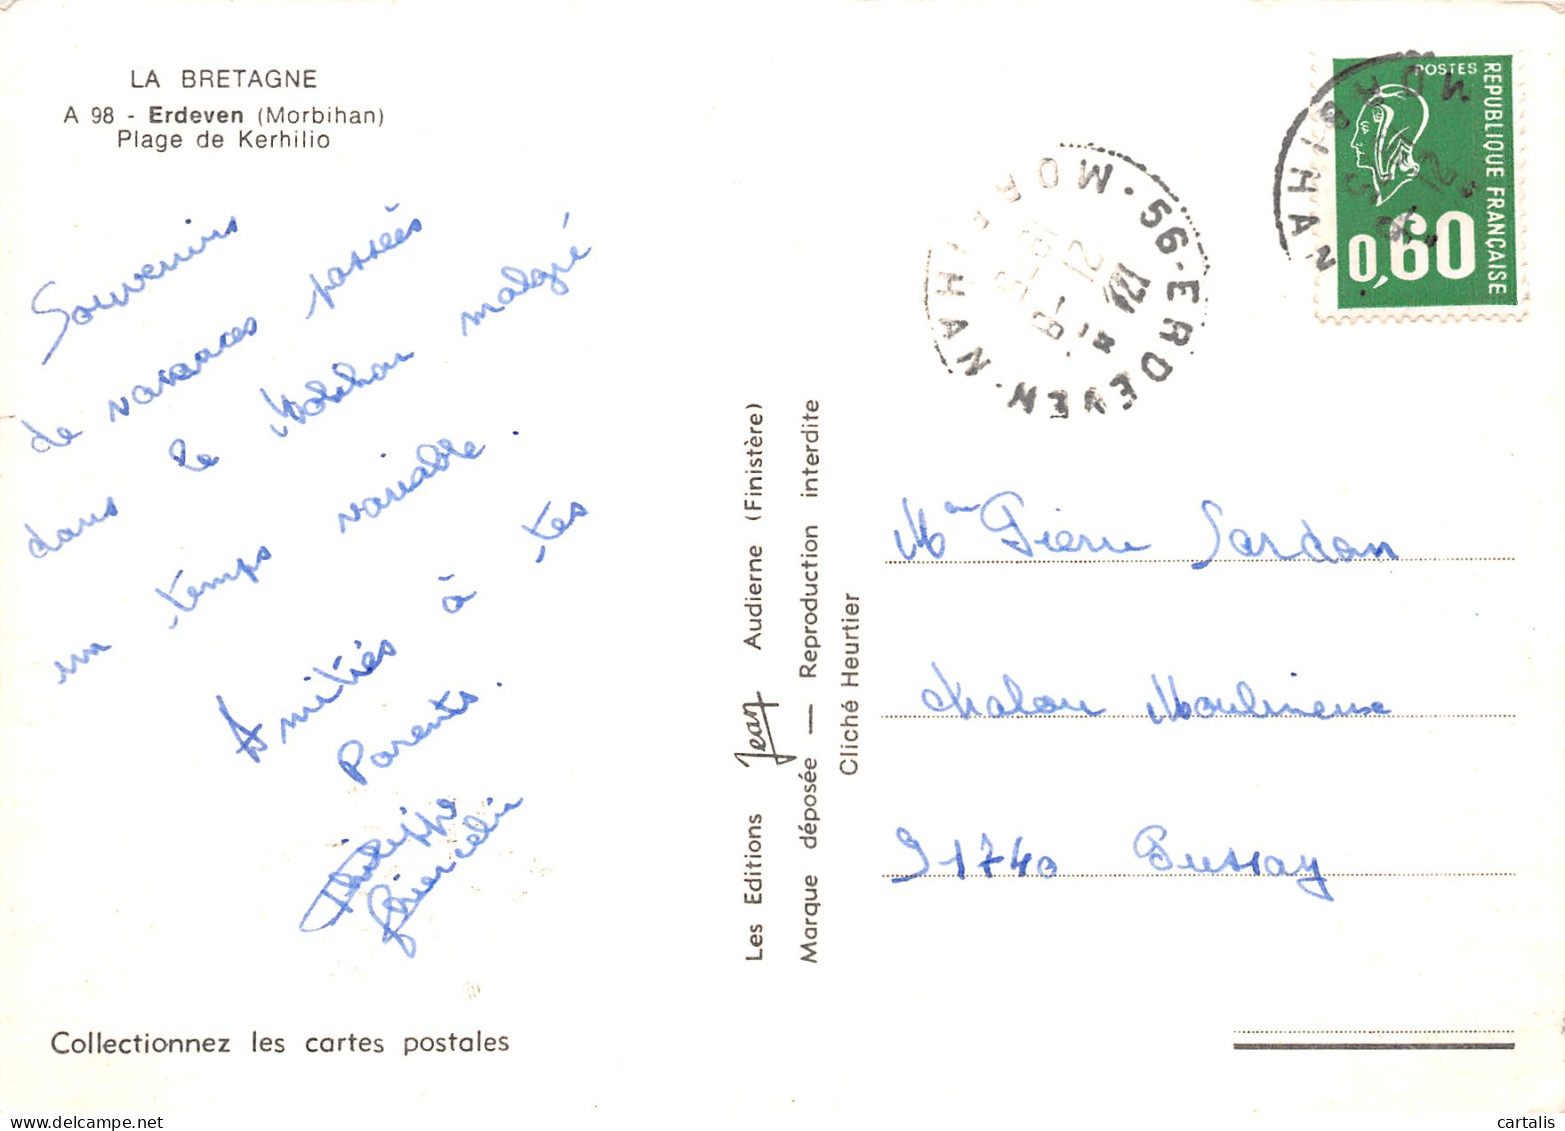 LA BRETAGNE
A 98 - Erdeven (Morbihan)
Plage de Kerhilio
Souvenirs
de vacances passées
dans le Morbihan malgré
un temps variable.
Amitiés à tes
Parents.
Philippe
Collectionnez les cartes postales
Les Editions Jean Audierne (Finistère)
Marque déposée — Reproduction interdite
Cliché Heurtier
POSTES
REPUBLIQUE FRANÇAISE
0,60
MORBIHAN
56-ERDEVEN·MORBIHAN·
12
8-
Pierre Sardan
Chalou Moulineux
91740 Pussay
cartalis